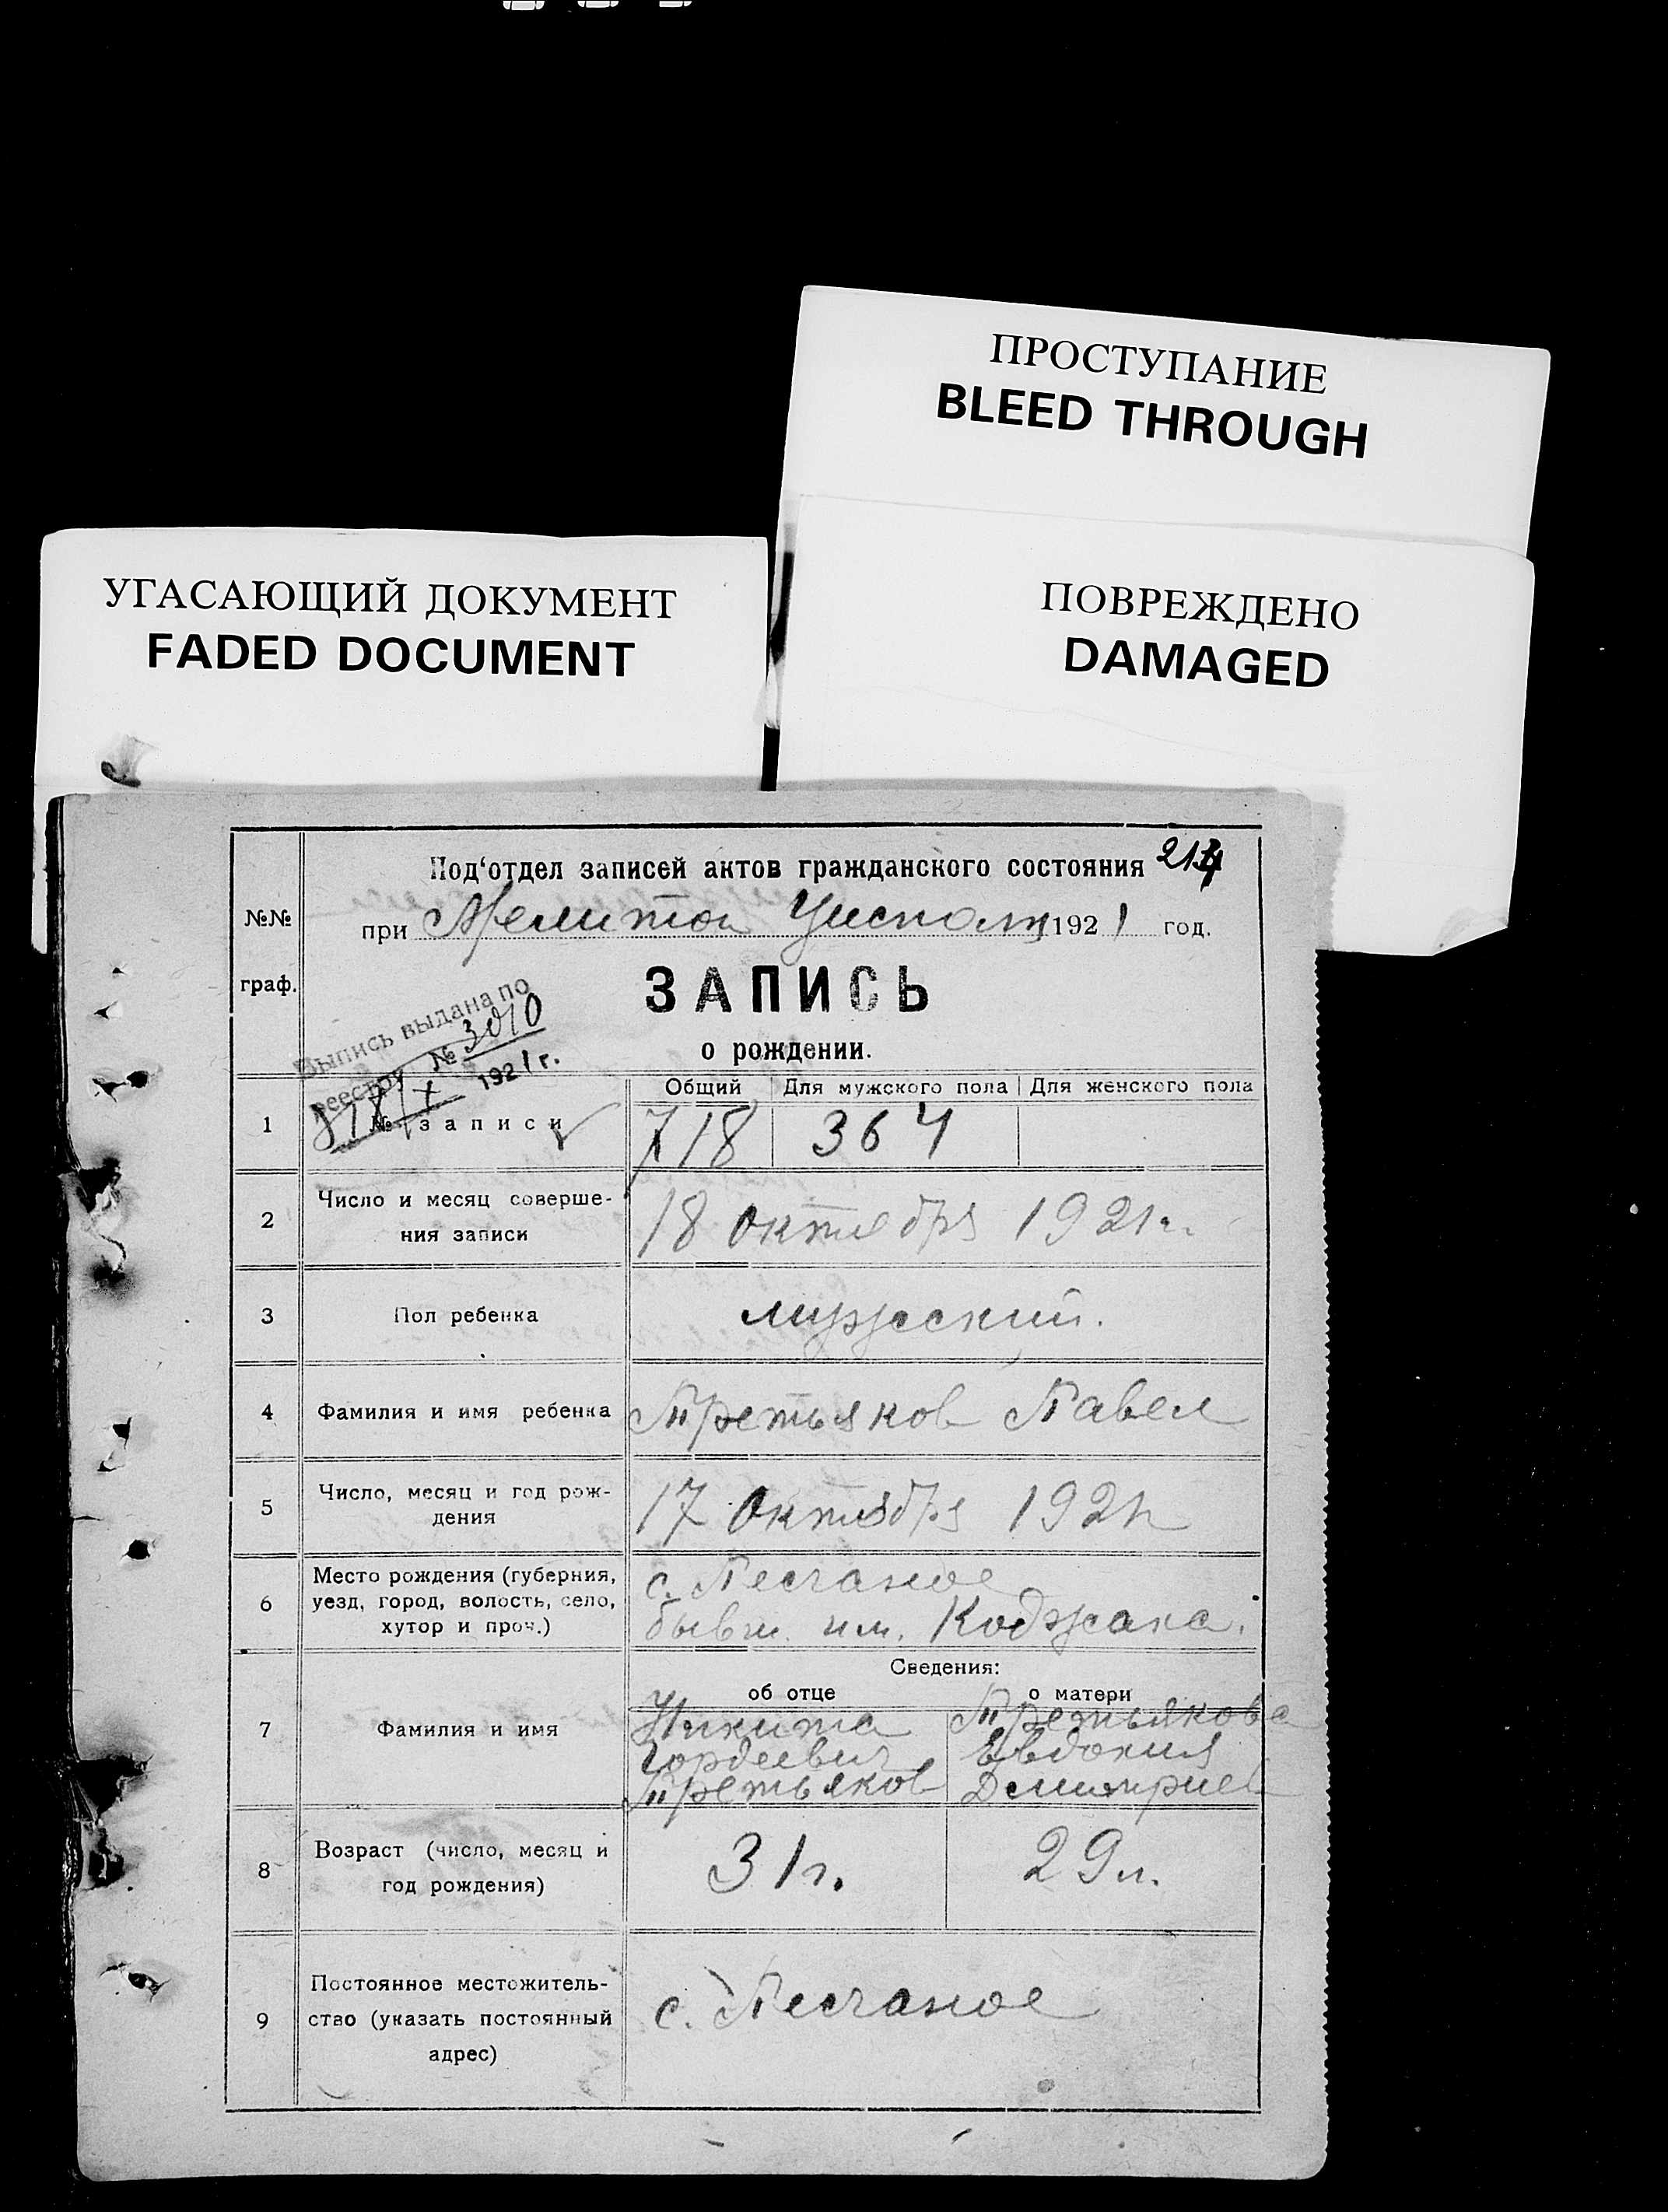 ПРОСТУПАНИЕ
BLEED THROUGH
УГАСАЮЩИЙ ДОКУМЕНТ
FADED DOCUMENT
ПОВРЕЖДЕНО
DAMAGED
Под‘отдел записей актов гражданского состояния 214
№№ граф.
при Мелитоп Уисполк 1921 год.
ЗАПИСЬ
о рождении.
Выпись выдана по
реестру № 3010
18/X 1921 г.
Общий Для мужского пола Для женского пола
1 № записи 718 364
2 Число и месяц соверше-
ния записи 18 октября 1921 г.
3 Пол ребенка мужеский.
4 Фамилия и имя ребенка Третьяков Павел
5 Число, месяц и год рож-
дения 17 октября 1921 г
6 Место рождения (губерния,
уезд, город, волость, село,
хутор и проч.)
с. Песчаное
бывш. им. Коджака.
Сведения:
об отце о матери
7 Фамилия и имя
Никита
Гордеевич
Третьяков
Третьякова
Евдокия
Дмитриев
8 Возраст (число, месяц и
год рождения) 31 г. 29 л.
9 Постоянное местожитель-
ство (указать постоянный
адрес)
с. Песчаное